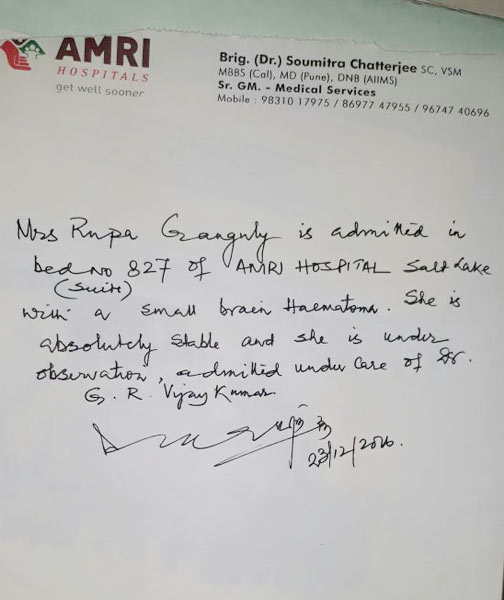 AMRI
HOSPITALS
get well sooner
Brig. (Dr.) Soumitra Chatterjee SC, VSM
MBBS (Cal), MD (Pune), DNB (AIIMS)
Sr. GM. - Medical Services
Mobile : 98310 17975 / 86977 47955 / 96747 40696
Mrs Rupa Ganguly is admitted in
bed no 827 of AMRI HOSPITAL Salt Lake
(Suite)
with a small brain Haematoma. She is
absolutely stable and she is under
observation, admitted under care of Dr.
G. R. Vijay Kumar
23/12/2016.